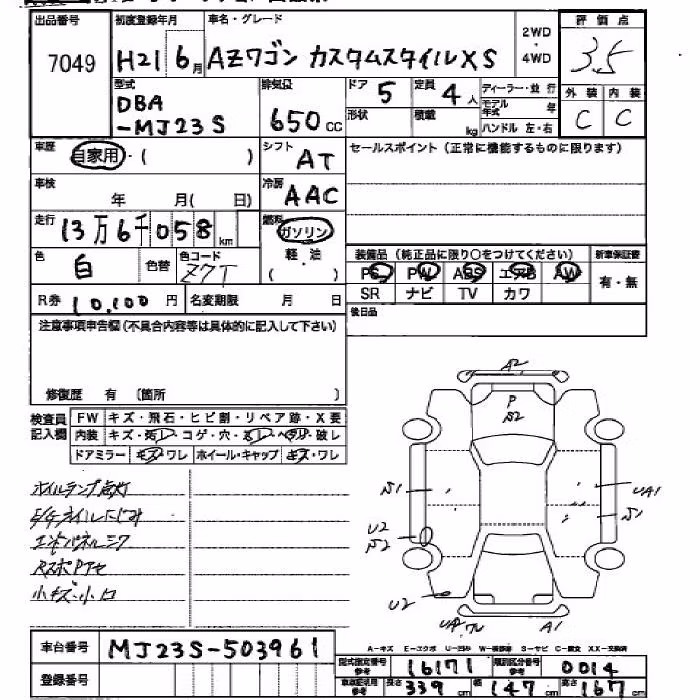 出品番号 初度登録年月 車名・グレード 2WD・4WD 評価点
7049 H21 6月 AZワゴン カスタムスタイルXS 3.5
型式 排気量 ドア 定員 ディーラー・並行 外装 内装
DBA-MJ23S 650cc 5 4人 モデル年式 年 C C
形状 積載 kg ハンドル 左・右
車歴 自家用・( ) シフト AT セールスポイント(正常に機能するものに限ります)
車検 年 月( 日) 冷房 AAC
走行 13万6千058km 燃料 ガソリン
軽・油
( )
色 白 色替 色コード Z7T 装備品(純正品に限り○をつけてください) 新車保証書
PS PW ABS エアB AW 有・無
SR ナビ TV カワ
R券 10,100円 名変期限 月 日
後日品
注意事項申告欄(不具合内容等は具体的に記入して下さい)
修復歴 有 〔箇所 〕
検査員記入欄 FW キズ・飛石・ヒビ割・リペア跡・X要
内装 キズ・汚レ・コゲ・穴・スレ・ヘタリ・破レ
ドアミラー キズ・ワレ ホイール・キャップ キズ・ワレ
小キズ・小凹
A2
P
S2
S1
UA1
S1
U2
S2
U2
A1
A-キズ E-エクボ U-凹み W-補修跡 S-サビ C-腐食 XX-交換済
車台番号 MJ23S-503961
型式指定番号 参考 16171 類別区分番号 参考 0014
登録番号 車検証明用 参考 長さ 339cm 幅 147cm 高さ 167cm